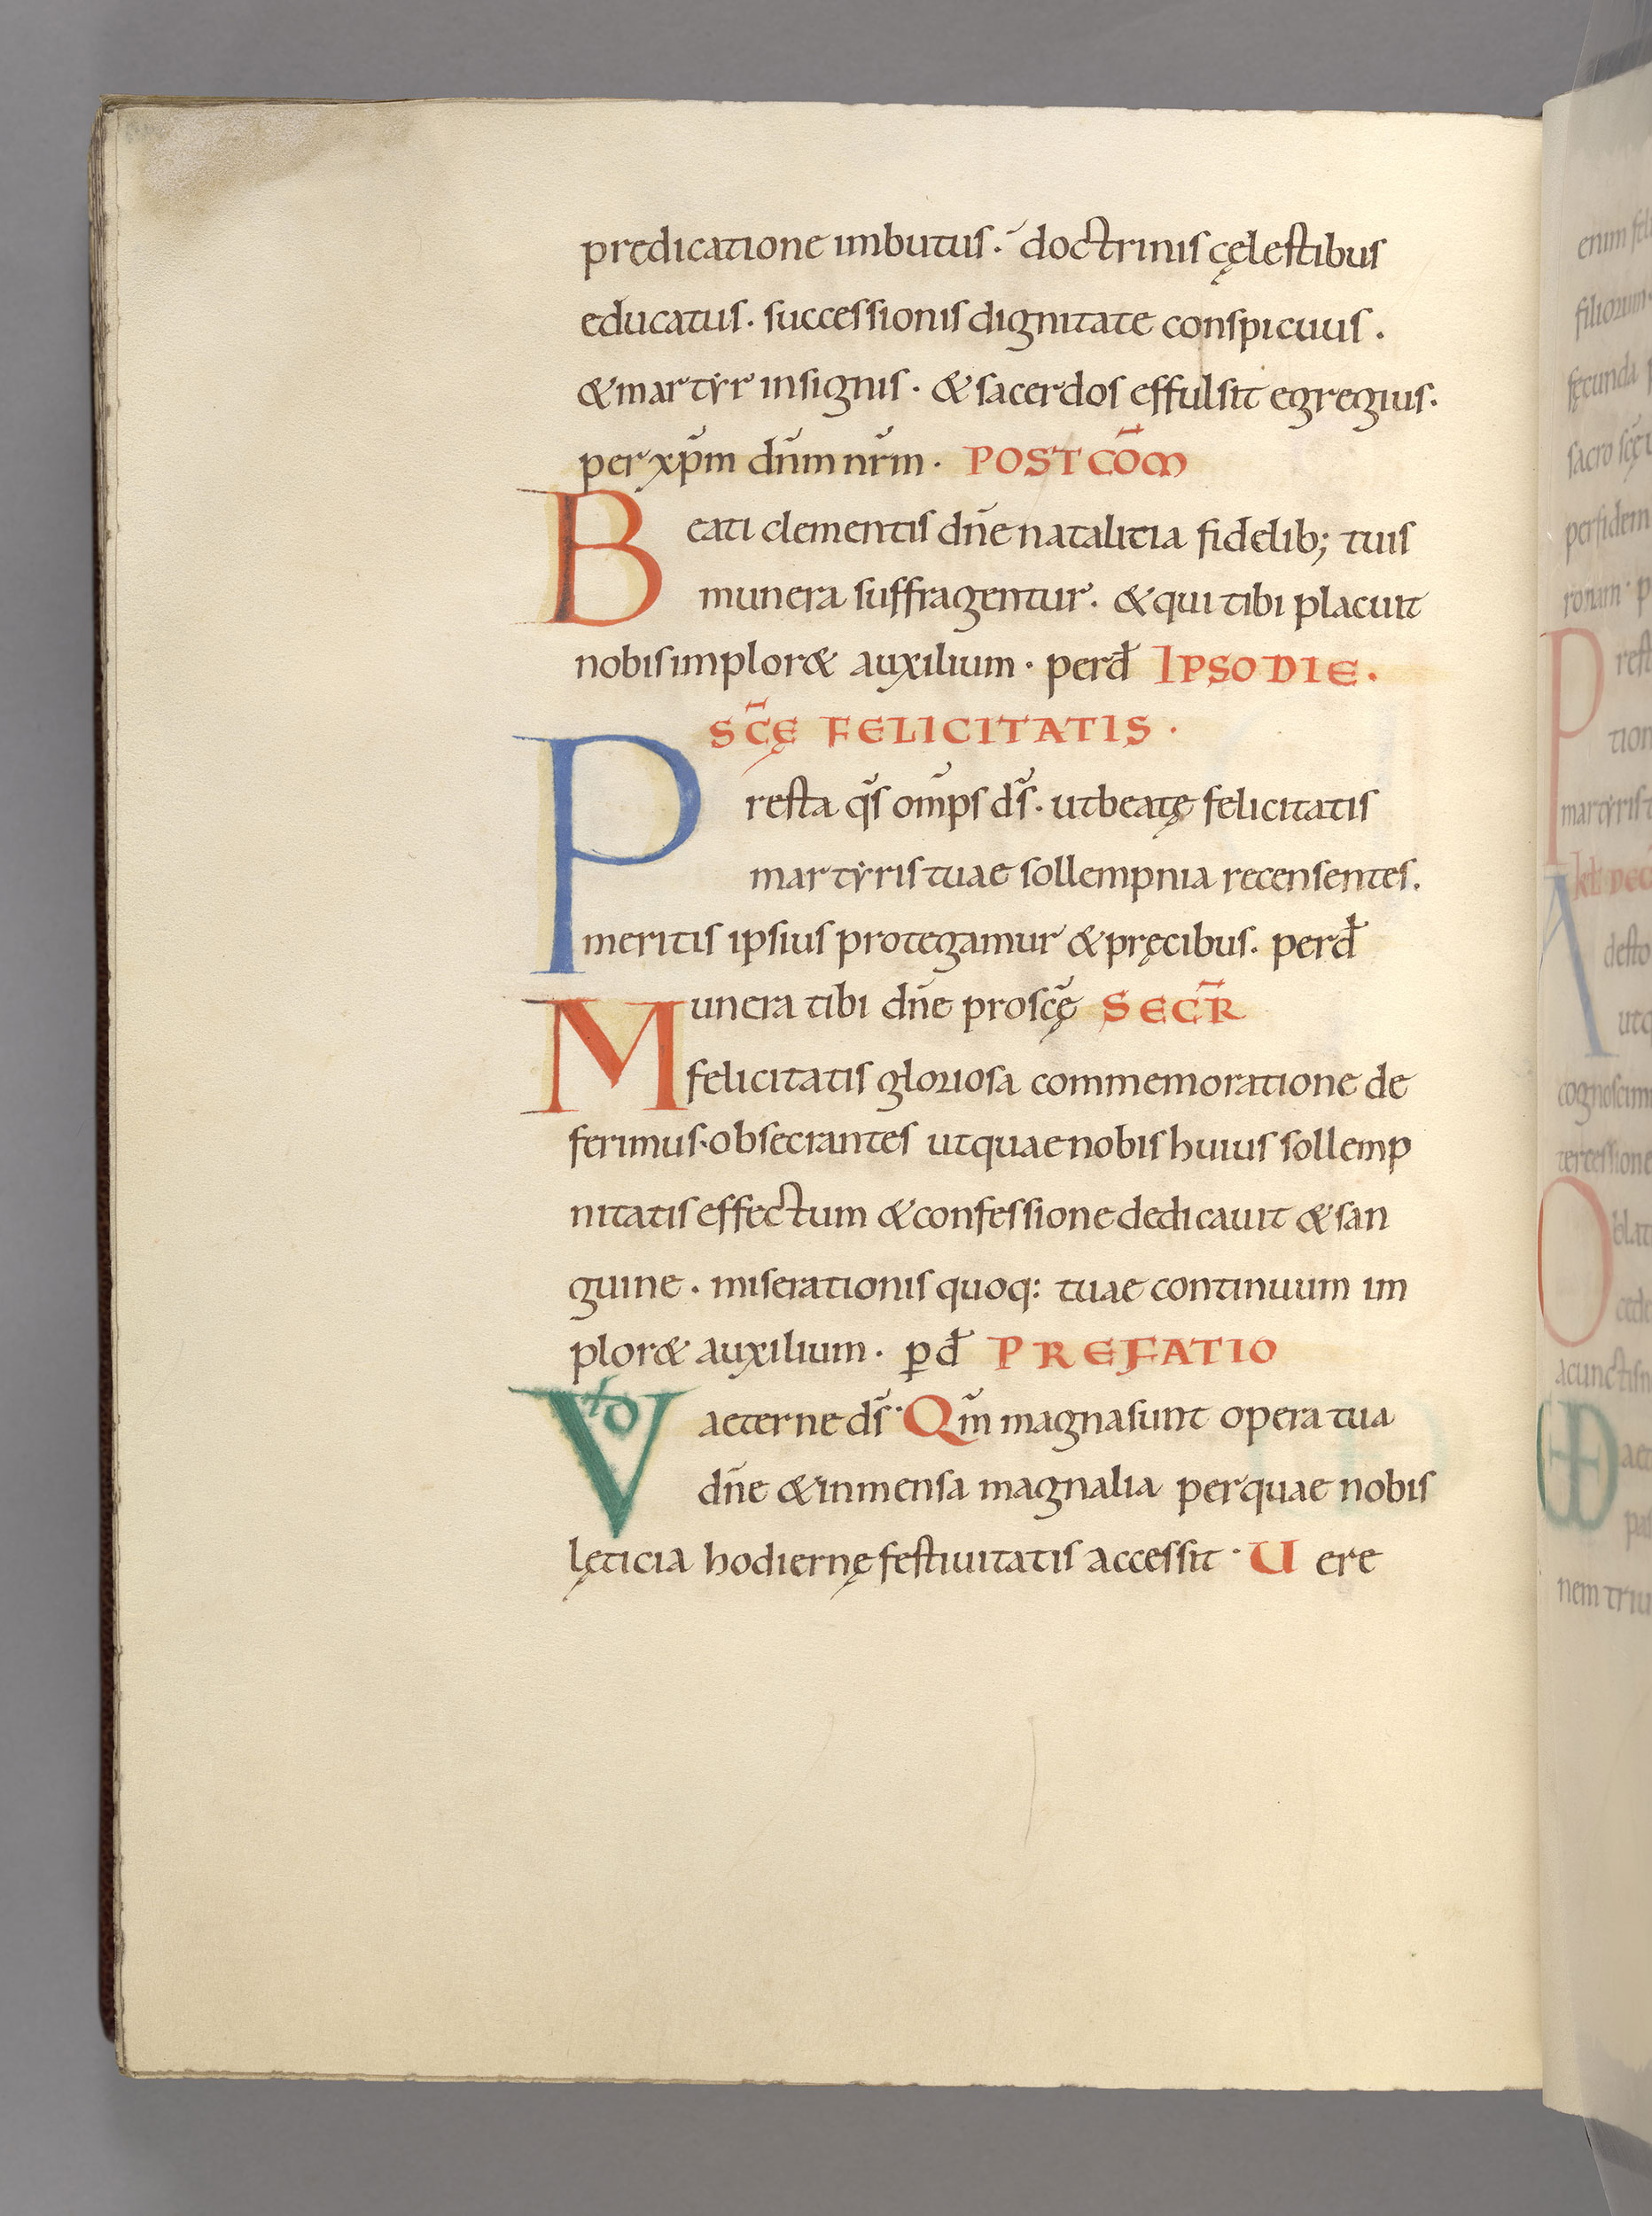 predicatione imbutus. doctrinis cęlestibus
educatus. successionis dignitate conspicuus.
& martẏr insignis. & sacerdos effulsit egregius.
per xp̄m dn̄m nr̄m. POST CŌM
Beati clementis dn̄e natalitia fidelib; tuis
munera suffragentur. & qui tibi placuit
nobis implor& auxilium. per d̄ IPSO DIE.
SC̄Ę FELICITATIS.
Presta qs̄ om̄ps ds̄. ut beatę felicitatis
martẏris tuae sollempnia recensentes.
meritis ipsius protegamur & pręcibus. per d̄
Munera tibi dn̄e pro sc̄ę SECR̄
felicitatis gloriosa commemoratione de
ferimus. obsecrantes ut quae nobis huius sollemp
nitatis effectum & confessione dedicauit & san
guine. miserationis quoq: tuae continuum im
plor& auxilium. ꝑ d̄ PREFATIO
VD aeterne ds̄. Qm̄ magna sunt opera tua
dn̄e & inmensa magnalia per quae nobis
lęticia hodiernę festiuitatis accessit. Uere
enim
filiorum
fęcunda
sacro sc̄ę
perfidem
P rest
tion
martẏris
kl DEC
A desto
utq
cognoscim
tercessione
O blat
cele
a cunctis
VD aet
nem triu